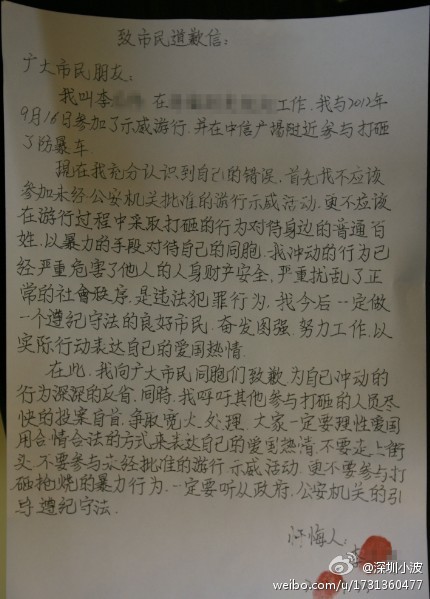 致市民道歉信:
广大市民朋友:
我叫李 在 工作,我与2012年
9月16日参加了示威游行,并在中信广场附近参与打砸
了防暴车.
现在我充分认识到自己的错误,首先我不应该
参加未经公安机关批准的游行示威活动,更不应该
在游行过程中采取打砸的行为对待身边的普通百
姓,以暴力的手段对待自己的同胞.我冲动的行为已
经严重危害了他人的人身财产安全,严重扰乱了正
常的社會秩序,是违法犯罪行为,我今后一定做
一个遵纪守法的良好市民,奋发图强,努力工作,以
实际行动表达自己的爱国热情.
在此,我向广大市民同胞们致歉,为自己冲动的
行为深深的反省,同時,我呼吁其他参与打砸的人员尽
快的投案自首,争取宽大处理,大家一定要理性爱国
用合情合法的方式来表达自己的爱国热情,不要走上街
头,不要参与未经批准的游行示威活动,更不要参与打
砸抢烧的暴力行为,一定要听从政府,公安机关的引
导,遵纪守法.
忏悔人:
李
@深圳小波
weibo.com/u/1731360477